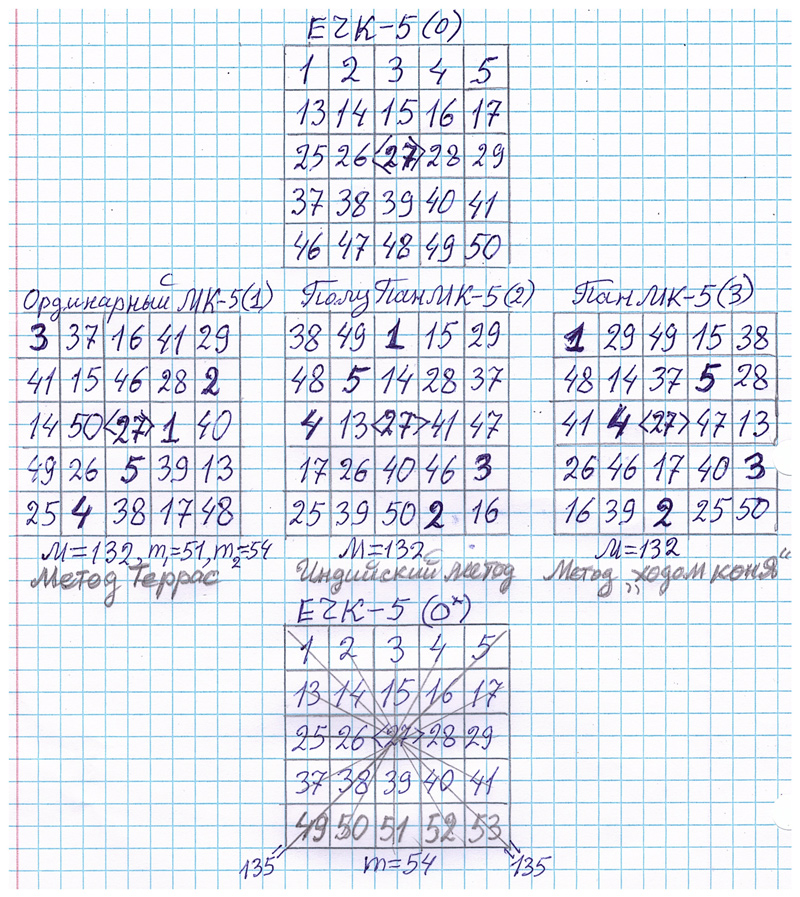 ЕЧК-5(0)
1 2 3 4 5
13 14 15 16 17
25 26 <27> 28 29
37 38 39 40 41
46 47 48 49 50
с
Ординарный МК-5(1) ПолуПанМК-5(2) ПанМК-5(3)
3 37 16 41 29 38 49 1 15 29 1 29 49 15 38
41 15 46 28 2 48 5 14 28 37 48 14 37 5 28
14 50 <27> 1 40 4 13 <27> 41 47 41 4 <27> 47 13
49 26 5 39 13 17 26 40 46 3 26 46 17 40 3
25 4 38 17 48 25 39 50 2 16 16 39 2 25 50
М=132, m1=51, m2=54 М=132 М=132
Метод Террас Индийский метод Метод „ходом коня“
ЕЧК-5(0*)
1 2 3 4 5
13 14 15 16 17
25 26 <27> 28 29
37 38 39 40 41
49 50 51 52 53
135 m=54 135